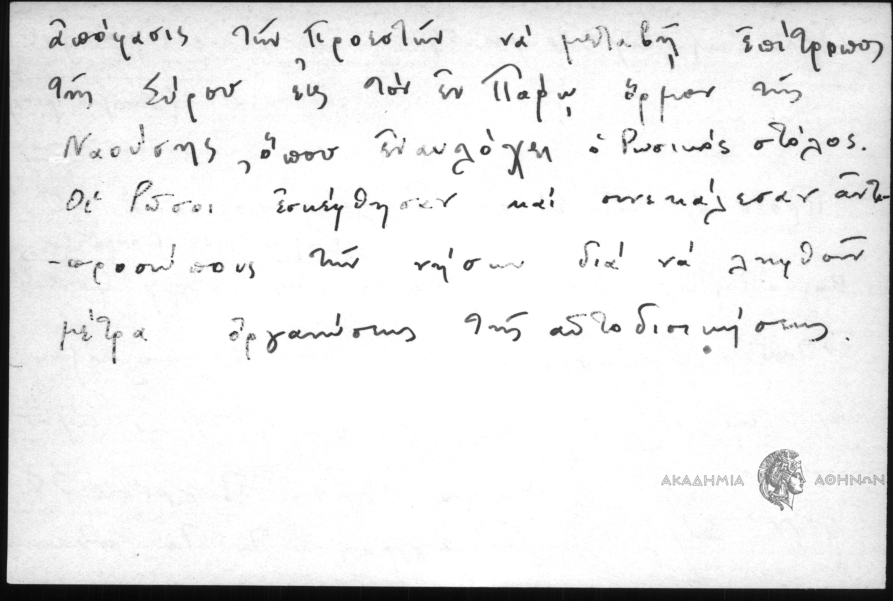 ἀπόφασις τῶν Προεστῶν νά μεταβῇ ἐπίτροπος
τῆς Σύρου εἰς τόν ἐν Πάρῳ ὅρμον τῆς
Ναούσης, ὅπου ἐναυλόχει ὁ Ρωσικός στόλος.
Οἱ Ρῶσοι ἐσκέφθησαν καί συνεκάλεσαν ἀντι-
-προσώπους τῶν νήσων διά νά ληφθοῦν
μέτρα ὀργανώσεως τῆς αὐτοδιοικήσεως.
ΑΚΑΔΗΜΙΑ ΑΘΗΝΩΝ